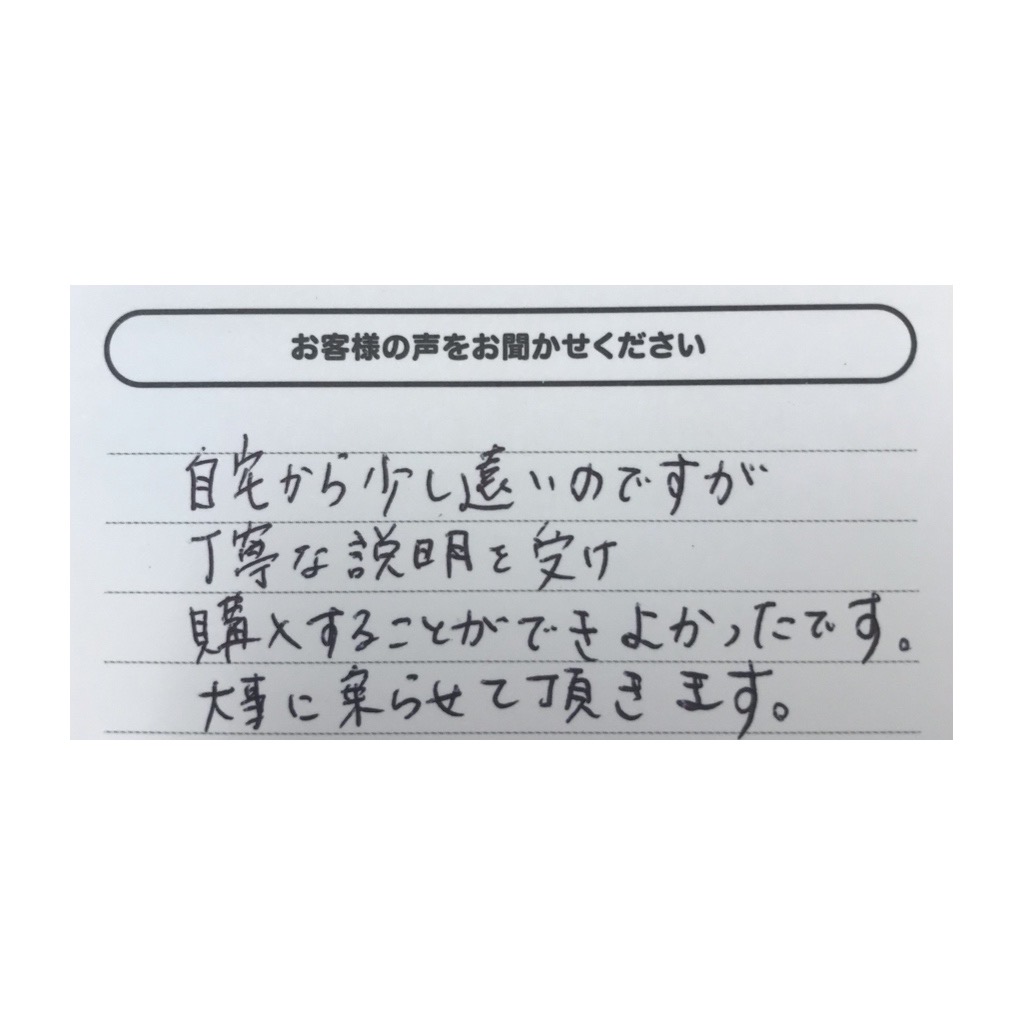 お客様の声をお聞かせください
自宅から少し遠いのですが
丁寧な説明を受け
購入することができよかったです。
大事に乗らせて頂きます。